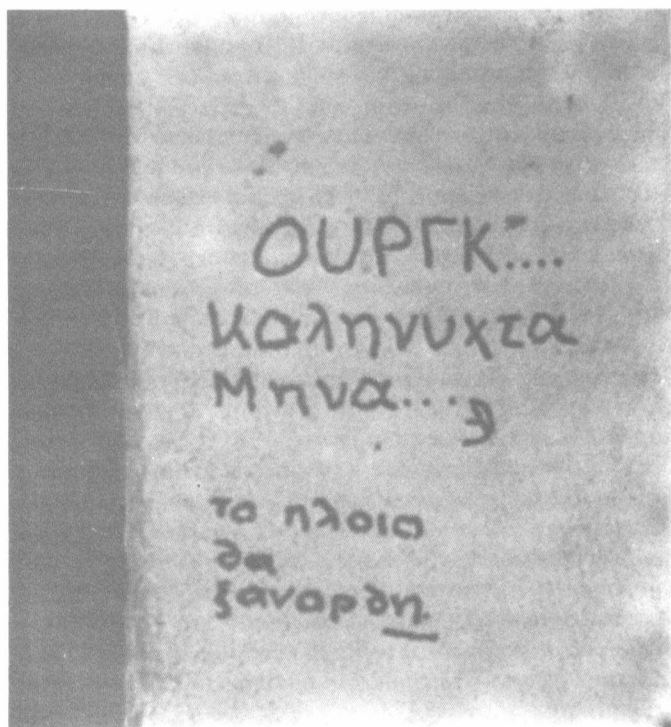 ΟΥΡΓΚ....
καληνυχτα
Μηνα...
το πλοιο
θα
ξαναρθη